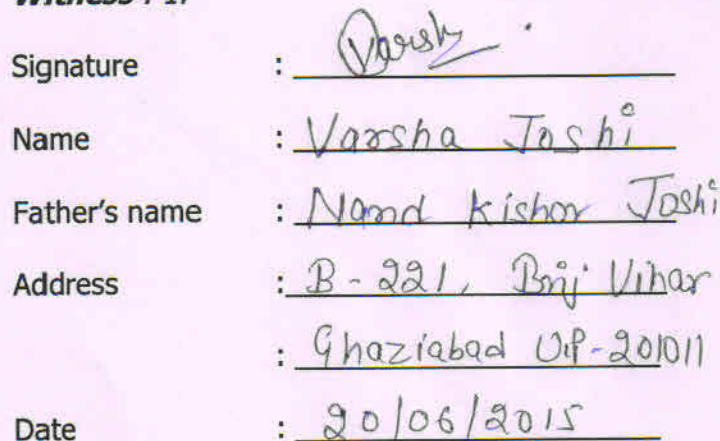 Witness : 1.
Signature : Varsh
Name : Varsha Joshi
Father's name : Nand Kishor Joshi
Address : B-221, Brij Vihar
: Ghaziabad U.P-201011
Date : 20/06/2015